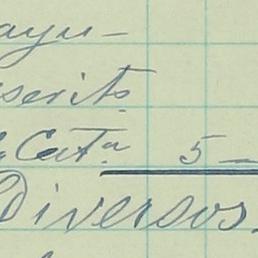 ayu-
serits
Catª 5 —
Diversos.